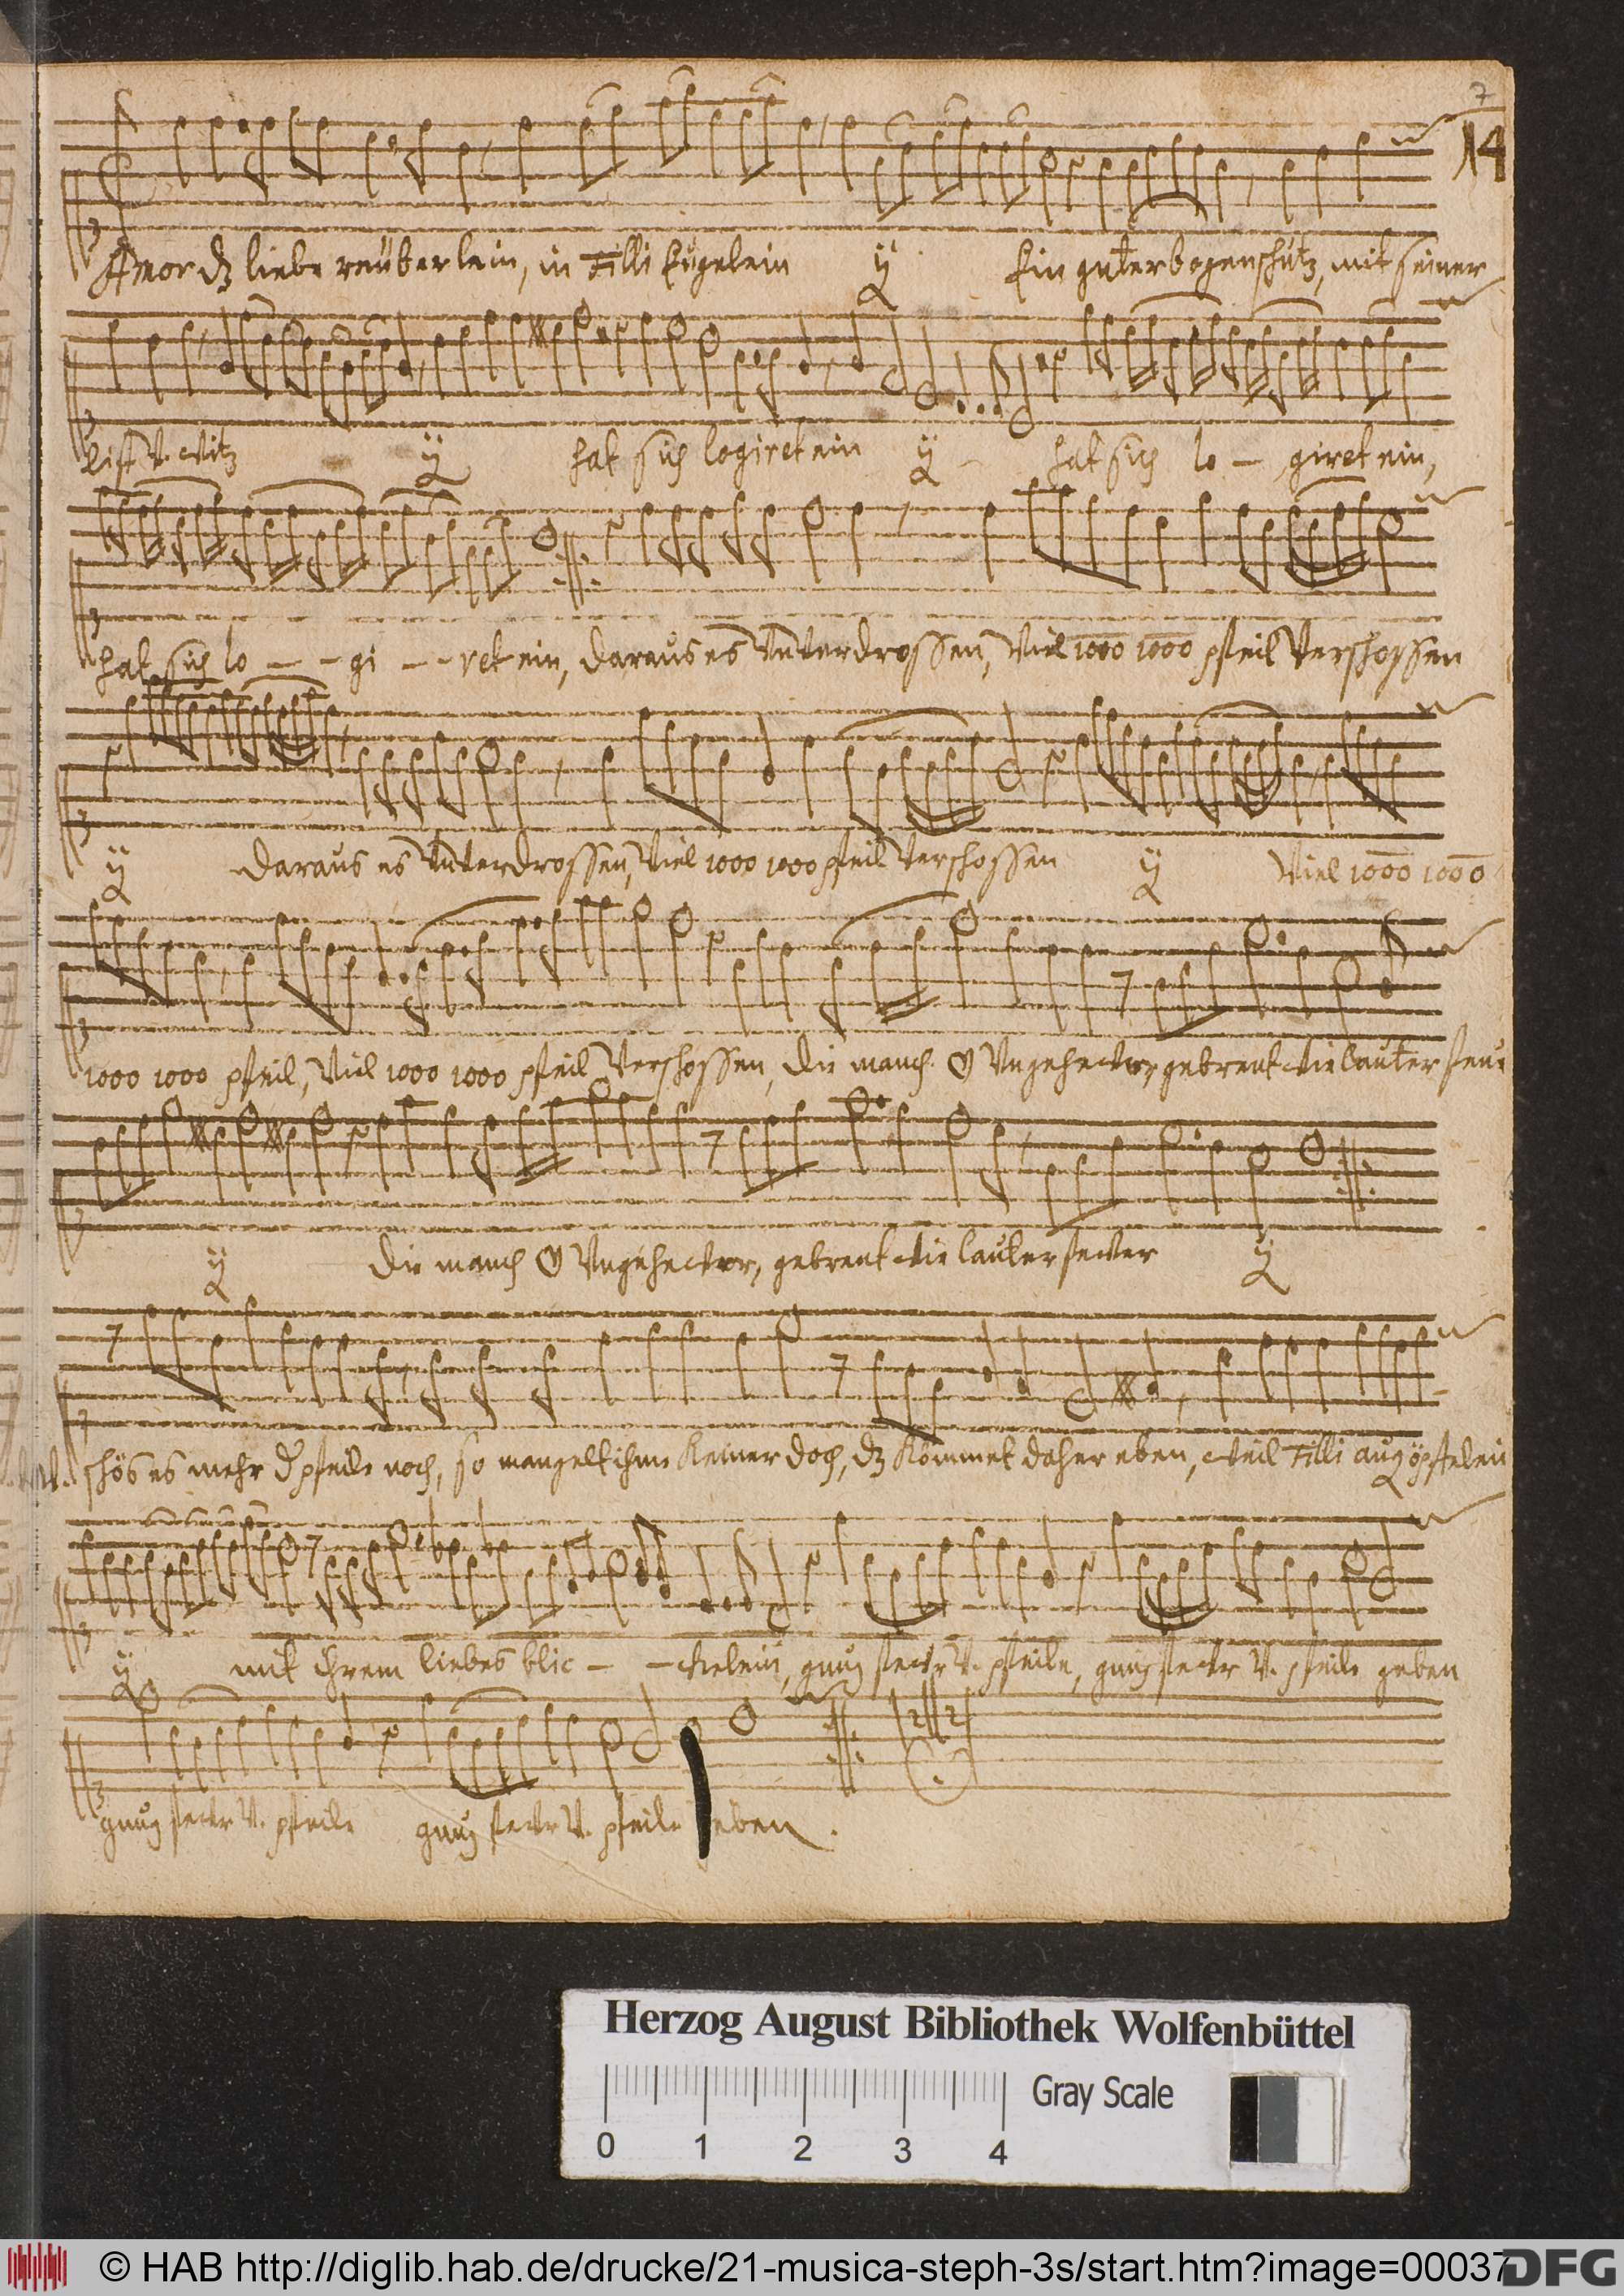 7
14
Amor dz liebe reuberlein, in Filli Eugelein ij Ein guter bogenschütz, mit seiner
list v. witz ij hat sich logiret ein ij hat sich lo - giret ein,
hat sich lo - - gi - - ret ein, daraus es Unverdrossen, Viel 1000 1000 pfeil Verschossen
ij daraus es Unverdrossen, Viel 1000 1000 pfeil Verschossen ij Viel 1000 1000
1000 1000 pfeil, Viel 1000 1000 pfeil Verschossen, die manch Ungehewr, gebrent wie lauter feur
ij die manch Ungehewr, gebrent wie lauter fewer ij
schös es mehr d pfeile noch, so mangelt ihm keiner doch, dz kömmet daher eben, weil Filli augöpfelein
ij mit ihrem liebes blic - - kelein, gnug fewr v. pfeile, gnug fewr v. pfeile geben
gnug fewr v. pfeile gnug fewr v. pfeile geben.
Herzog August Bibliothek Wolfenbüttel
Gray Scale
0 1 2 3 4
© HAB http://diglib.hab.de/drucke/21-musica-steph-3s/start.htm?image=00037
DFG